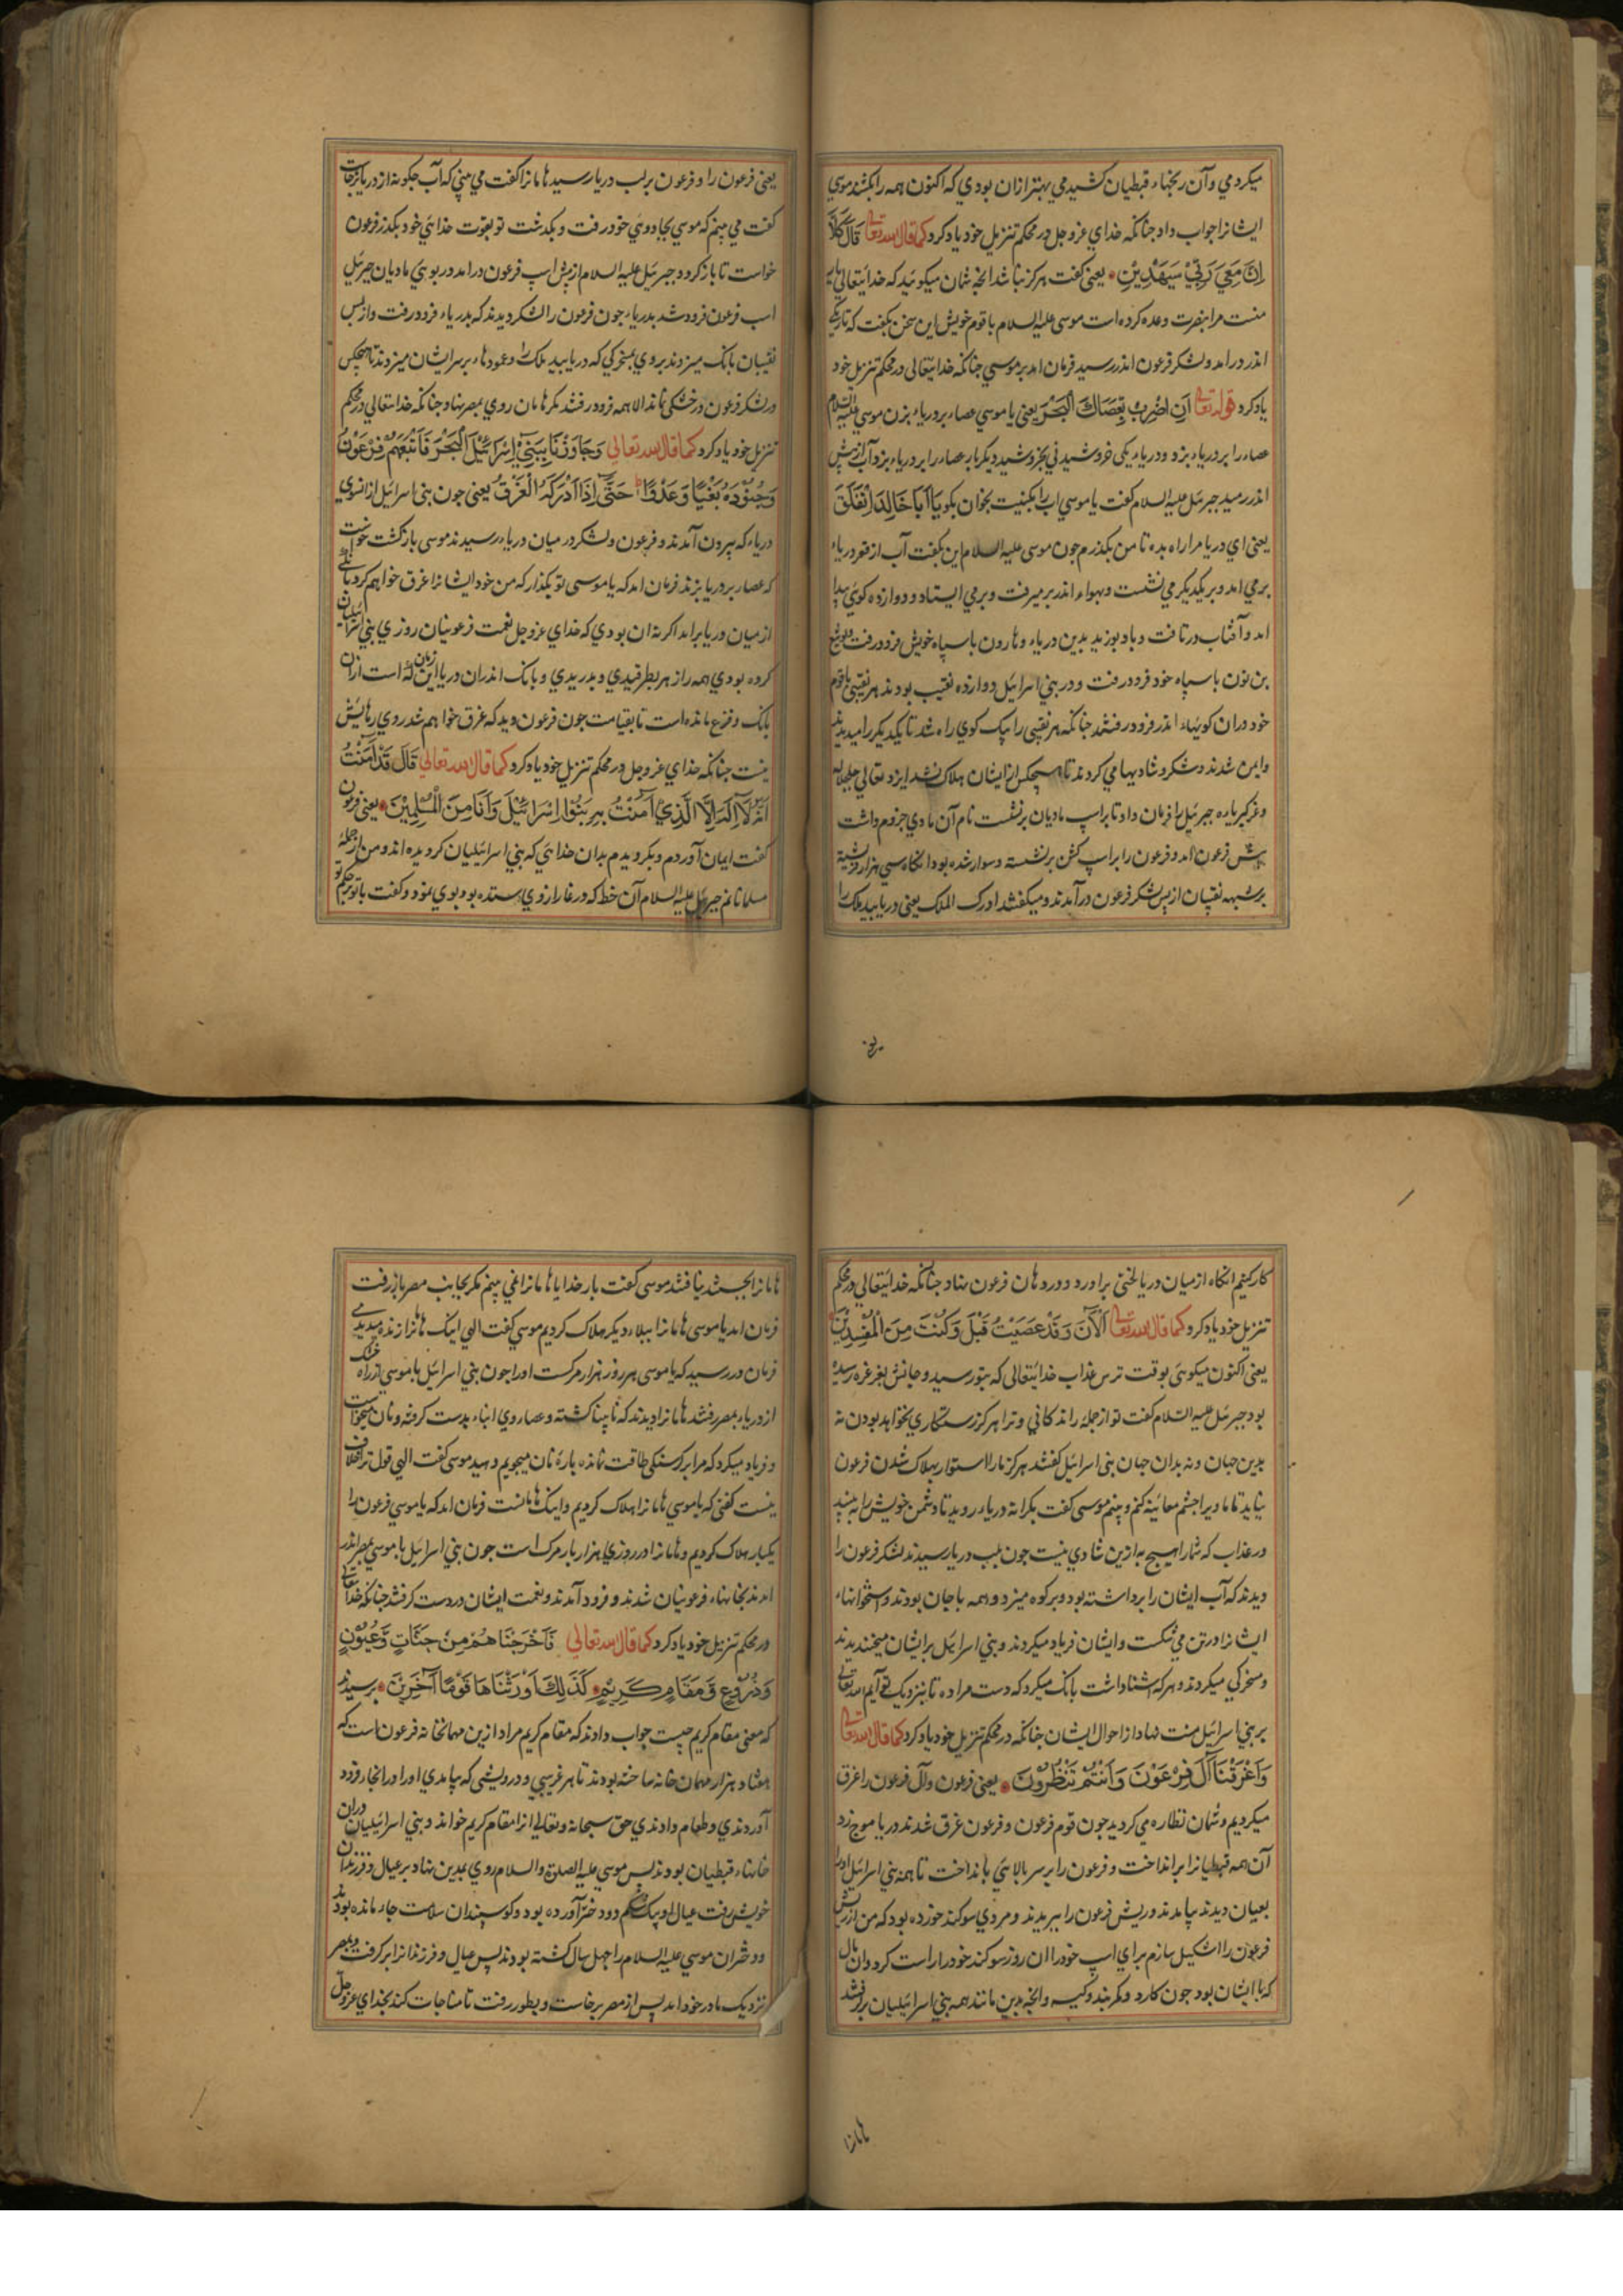 میکردمی وآن رنجهاء قبطیان کشیدمی بهتر ازان بودی که اکنون همه را بکشند موسی
ایشانرا جواب داد جنانکه خدای عز وجل در محکم تنزیل خود یاد کرد کما قال الله تعالی قَالَ كَلَّا
اِنَّ مَعِيَ رَبِّيْ سَيَهْدِيْنِ یعنی کفت هرکز نباشد انجه شمان میکوئید که خدایتعالی یار
منست مرا بنصرت وعده کرده است موسی علیه السلام با قوم خویش این سخن بکفت که تاریکی
اندر درامد ولشکر فرعون اندر رسید فرمان امد بر موسی جنانکه خدایتعالی در محکم تنزیل خود
یاد کرد قوله تعالی اَنِ اضْرِبْ بِعَصَاكَ الْبَحْرَ یعنی یا موسی عصاء بر دریاء بزن موسی علیه السلام
عصاء را بر دریاء بزد ودریاء یکی خروشیدنی بخروشید دیکر بار عصاء را بر دریاء بزد آب از پیش
اندر رمید جبرئیل علیه السلام کفت یا موسی اب را بکنیت بخوان بکو یَا اَبَا خَالِدٍ اِنْفَلَقَ
یعنی ای دریا مرا راه بده تا من بکذرم جون موسی علیه السلام این بکفت آب از قعر دریاء
برمی امد وبر یکدیکر می نشست وبهواء اندر برمیرفت وبرمی ایستاد ودوازده کوئی پیدا
امد وآفتاب درتافت وباد بوزید بدین دریاء وهارون با سپاه خویش فرو درفت ویوشع
بن نون با سپاه خود فرو درفت ودر بنی اسرائیل دوازده نقیب بودند هر نقیبی با قوم
خود دران کویهاء اندر فرو درفتند جنانکه هر نقیبی را یک کوی راه شد تا یکدیکر را میدیدند
وایمن شدند وشکر وشادیها می کردند تا هیجکس از ایشان هلاک نشد ایزد تعالی جل جلاله
وعز کبریاءه جبرئیل را فرمان داد تا بر اسپ مادیان برنشست نام آن مادی جزوم داشت
پیش فرعون امد وفرعون را بر اسپ کشن برنشسته وسوار شده بود انکاه سی هزار
نقیبان از پس لشکر فرعون درآمدند ومیکفتند ادرک الملک یعنی دریابید ملک را
یعنی فرعون را وفرعون بر لب دریا رسید هامانرا کفت می بینی که آب جکونه از دریا برخاست
کفت می بینم که موسی بجادوئی خود رفت وبکدشت تو بقوت خدائی خود بکذر فرعون
خواست تا باز کردد جبرئیل علیه السلام از پیش اسپ فرعون درامد در بوئی مادیان جبرئیل
اسب فرعون فرود شد بدریاء جون فرعون را لشکر دیدند که بدریاء فرو درفت واز پس
نقیبان بانک میزدند بروی بمسخرکی که دریابید ملک را وعودهاء برسر ایشان میزدند تا هیچکس
در لشکر فرعون در خشکی نماند الا همه فرو درفتند مکر هامان روی بمصر نهاد جنانکه خدایتعالی در محکم
تنزیل خود یاد کرد کما قال الله تعالی وَجَاوَزْنَا بِبَنِيْ اِسْرَائِيْلَ الْبَحْرَ فَاَتْبَعَهُمْ فِرْعَوْنُ
وَجُنُوْدُهُ بَغْيًا وَعَدْوًا حَتّٰى اِذَا اَدْرَكَهُ الْغَرَقُ یعنی جون بنی اسرائیل از انسوی
دریاء که بیرون آمدند وفرعون ولشکر در میان دریاء رسیدند موسی باز کشت خواست
که عصا بر دریا بزند فرمان امد که یا موسی تو بکذار که من خود ایشانرا غرق خواهم کرد بانکی
از میان دریا برامد اکر نه ان بودی که خدای عز وجل نعمت فرعونیان روزی بنی اسرائیلیان
کرده بودی همه را زهره بطرقیدی وبدریدی وبانک اندران دریا این زمان مانده است ازان
بانک وفزع مانده است تا بقیامت جون فرعون دید که غرق خواهم شد روی رهایش
نیست جنانکه خدای عز وجل در محکم تنزیل خود یاد کرد کما قال الله تعالی قَالَ قَدْ اٰمَنْتُ
اَنَّهُ لَا اِلٰهَ اِلَّا الَّذِيْ اٰمَنَتْ بِهِ بَنُوْا اِسْرَائِيْلَ وَاَنَا مِنَ الْمُسْلِمِيْنَ یعنی فرعون
کفت ایمان آوردم وبکرویدم بدان خدائی که بنی اسرائیلیان کرویده اند ومن از جمله
مسلمانانم جبرئیل علیه السلام آن خط که در غار ازوی ستده بود بوی نمود وکفت با تو بحکم تو
کار کنیم انکاه از میان دریا لختی براورد ودر دهان فرعون نهاد جنانکه خدایتعالی در محکم
تنزیل خود یاد کرد کما قال الله تعالی اٰلْآنَ وَقَدْ عَصَيْتَ قَبْلُ وَكُنْتَ مِنَ الْمُفْسِدِيْنَ
یعنی اکنون میکوئی بوقت ترس عذاب خدایتعالی که بتو رسید وجانش بغرغره رسیده
بود جبرئیل علیه السلام کفت تو از جمله راندکانی وترا هرکز رستکاری نخواهد بودن نه
بدین جهان ونه بدان جهان بنی اسرائیل کفتند هرکز مارا استوار بهلاک شدن فرعون
نیاید تا ما ویرا بجشم معاینه کنم وبینم موسی کفت بکرانه دریاء روید تا دشمن خویش را به بینید
در عذاب که شمارا هیچ به ازین شادی نیست جون بلب دریا رسیدند لشکر فرعون را
دیدند که آب ایشان را برداشته بود وبر کوه میزد وهمه با جان بودند واستخوانهاء
ایشانرا درتن می شکست وایشان فریاد میکردند وبنی اسرائیل بر ایشان میخندیدند
ومسخرکی میکردند وهر که اشنا داشت بانک میکرد که دست مرا ده تا بنزدیک تو آیم الله تعالی
بر بنی اسرائیل منت نهاد از احوال ایشان جنانکه در محکم تنزیل خود یاد کرد کما قال الله تعالی
وَاَغْرَقْنَا اٰلَ فِرْعَوْنَ وَاَنْتُمْ تَنْظُرُوْنَ یعنی فرعون وآل فرعون را غرق
میکردیم وشمان نظاره می کردید جون قوم فرعون وفرعون غرق شدند دریا موج زد
آن همه قبطیانرا برانداخت وفرعون را برسر بالائی بانداخت تا همه بنی اسرائیل اورا
بعیان دیدند بیامدند وریش فرعون را ببریدند ومردی سوکند خورده بود که من از ریش
فرعون را اشکیل سازم برای اسپ خود را ان روز سوکند خود را راست کرد وان مال
که با ایشان بود جون کارد وکمربند وکیسه وانجه بدین مانند همه بنی اسرائیلیان برفتند
هامانرا
هامانرا بجستند نیافتند موسی کفت بار خدایا هامانرا نمی بینم مکر بجانب مصر باز رفت
فرمان امد یا موسی هامانرا ببلاء دیکر هلاک کردیم موسی کفت الهی اینک هامانرا زنده میدیدی
فرمان در رسید که یا موسی هر روز هزار مرکست اورا جون بنی اسرائیل با موسی از راه خشک
از دریاء بمصر رفتند هامانرا دیدند که نابینا کشته وعصاء روی ابناء بدست کرفته ونان میخواست
وفریاد میکرد که مرا بر کرسنکی طاقت نمانده پارهٔ نان میجویم دهید موسی کفت الهی قول ترا خلاف
نیست کفتی که یا موسی هامانرا هلاک کردیم واینک هامانست فرمان امد که یا موسی فرعون را
یکبار هلاک کردیم وهامانرا در روزی هزار بار مرک است جون بنی اسرائیل با موسی بمصر اندر
امدند بخانهاء فرعونیان شدند وفرود آمدند ونعمت ایشان در دست کرفتند جنانکه خدایتعالی
در محکم تنزیل خود یاد کرد کما قال الله تعالی فَاَخْرَجْنَاهُمْ مِنْ جَنَّاتٍ وَّعُيُوْنٍ
وَّزُرُوْعٍ وَّمَقَامٍ كَرِيْمٍ كَذٰلِكَ اَوْرَثْنَاهَا قَوْمًا اٰخَرِيْنَ پرسیدند
که معنی مقام کریم چیست جواب دادند که مقام کریم مراد ازین مهمانخانه فرعون است که
هفتاد هزار مهمان خانه ساخته بودند تا هر غریبی ودرویشی که بیامدی اورا در انجا فرود
آوردندی وطعام دادندی حق سبحانه وتعالی انرا مقام کریم خواند وبنی اسرائیلیان دران
خانهاء قبطیان بودند پس موسی علیه الصلوة والسلام روی بمدین نهاد بر عیال وفرزندان
خویش رفت عیال او بیک شکم دو دختر آورده بود وکوسپندان سلامت جاء مانده بودند
ودختران موسی علیه السلام را چهل سال کشته بودند پس عیال وفرزندانرا برکرفت وبمصر
نزدیک مادر خود امد پس از مصر برخاست وبطور رفت تا مناجات کند بخدای عز وجل